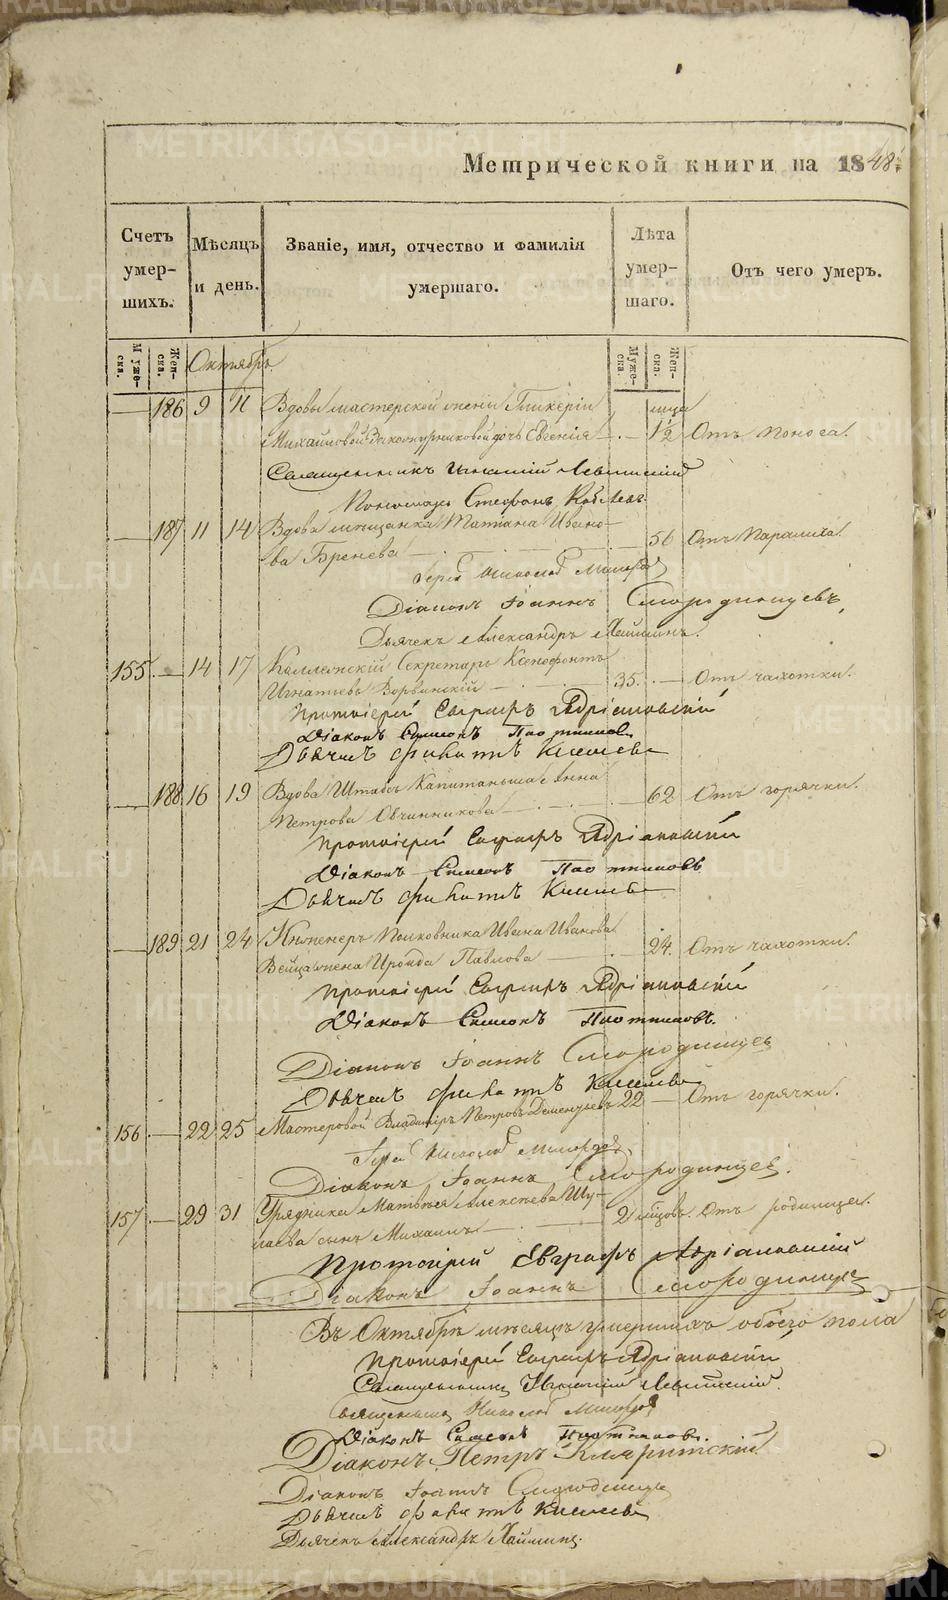 Метрической книги на 1848.
Счетъ умер-шихъ.
Мѣсяцъ и день.
Званіе, имя, отчество и фамилія умершаго.
Лѣта умер-шаго.
Отъ чего умеръ.
Муже-ска. Жен-ска. Октябрь Муже-ска. Жен-ска.
— 186 9 11 Вдовы мастерской жены Гликеріи
Михайловой дочь Евгенія — 1½ Отъ поноса.
Священникъ Игнатій Левитскій
Пономарь Стефанъ
— 187 11 14 Вдова мѣщанка Татіана Ивано-
ва Бренева — 56 Отъ паралича.
Іерей Николай
Діаконъ Іоаннъ Смородинцевъ,
Дьячекъ Александръ
155 — 14 17 Коллежскій Секретарь Ксенофонтъ
Игнатьевъ — 35. — Отъ чахотки.
Протоіерей Евграфъ Адріановскій
Діаконъ Симеонъ Плотниковъ
Дьячекъ Киселевъ
— 188 16 19 Вдова Штабсъ Капитанша Анна
Петрова Овчинникова — 62 Отъ горячки.
Протоіерей Евграфъ Адріановскій
Діаконъ Симеонъ Плотниковъ
Дьячекъ Киселевъ
— 189 21 24 Инженеръ Полковника Ивана Иванова
жена Ироида Павлова — 24. Отъ чахотки.
Протоіерей Евграфъ Адріановскій
Діаконъ Симеонъ Плотниковъ.
Діаконъ Іоаннъ Смородинцев
Дьячекъ Киселевъ
156 — 22 25 Мастеровой Владиміръ Петровъ Дементьевъ 22 — Отъ горячки.
Іерей Николай
Діаконъ Іоаннъ Смородинцев.
157 — 29 31 Урядника Матвея Алексѣева Шу-
сынъ Михаилъ — 2 мѣсцовъ. Отъ родимца.
Протоіерей Евграфъ Адріановскій
Діаконъ Іоаннъ Смородинцев
Въ Октябрѣ мѣсяцѣ умершихъ обоего пола
Протоіерей Евграфъ Адріановскій
Священникъ Игнатій Левитскій.
Священникъ Николай
Діаконъ Симеонъ Плотниковъ.
Діаконъ Петръ
Діаконъ Іоаннъ Смородинцевъ
Дьячекъ Киселевъ
Дьячекъ Александръ
METRIKI.GASO-URAL.RU